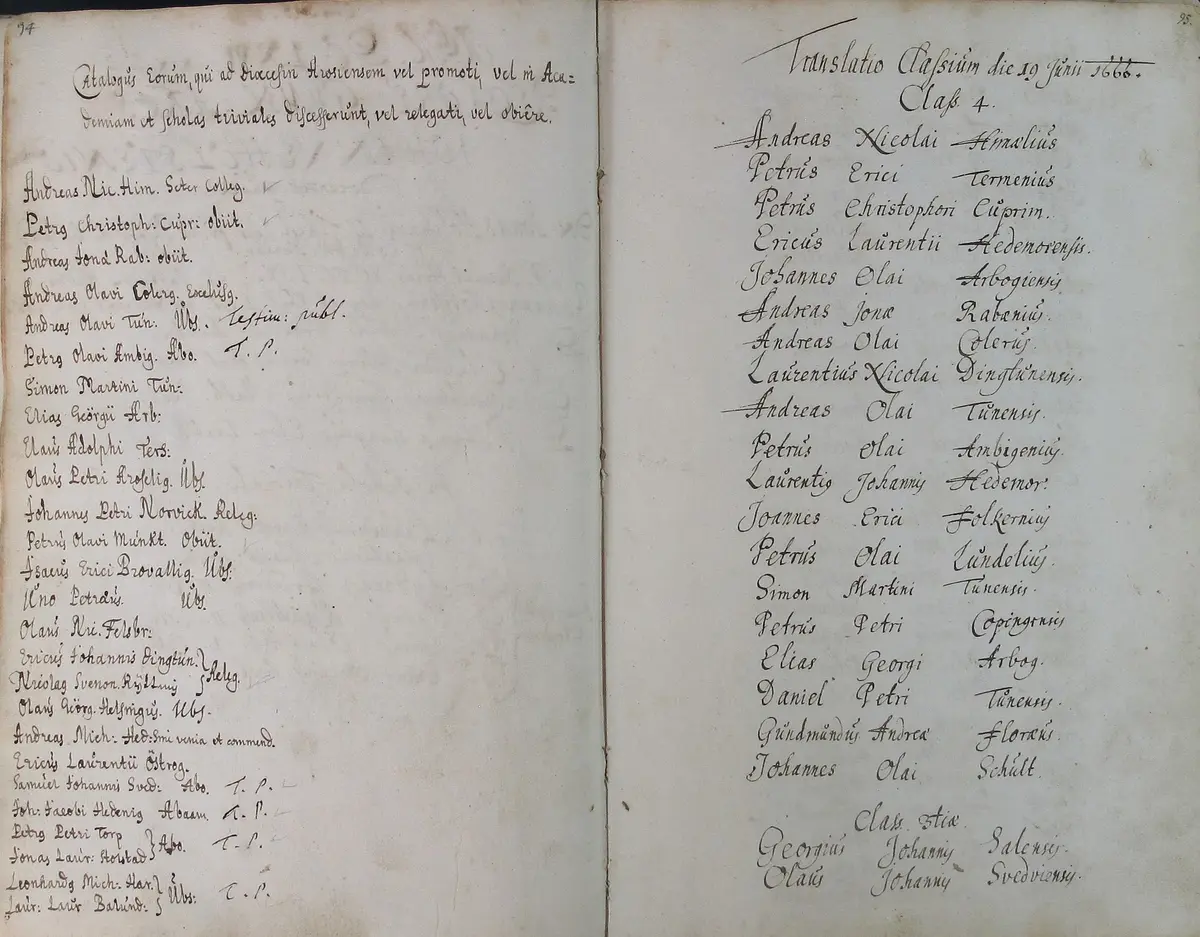 94
Catalogus Eorum, qui ad dioecesin Arosiensem vel promoti, vel in Aca=
demiam et scholas triviales discesserunt, vel relegati, vel obiêre.
Andreas Nic. Him. Seter Colleg.
Petrg Christoph: Cupr: obiit.
Andreas Jonæ Rab: obiit.
Andreas Olavi Colerg. Exclusg.
Andreas Olavi Tun: Ubs. Testim: publ.
Petrg Olavi Ambig. Abo. T. P.
Simon Martini Tun:
Elias Georgii Arb:
Claus Adolphi Ters:
Olaus Petri Aroselig. Ubs.
Johannes Petri Norvick. Releg:
Petrus Olavi Munkt. Obiit.
Isacus Erici Brovallig. Ubs.
Uno Petræus. Ubs
Olaus Nic. Felsbr:
Ericus Johannis Dingtun.
Nicolag Svenon. Releg.
Olaus Georg. Helsingus. Ubs.
Andreas Mich: Hed: venia et commend.
Ericus Laurentii Östrog.
Samuel Johannis Sved: Abo. T. P.
Joh: Jacobi Hedenig Aboam. T. P.
Petrg Petri Torp
Jonas Laur: Abo. T. P.
Leonhardg Mich: Har.
Laur: Laur Balund: Ubs: T. P.
95.
Translatio Classium die 19 Junii 1666.
Class. 4.
Andreas Nicolai Himælius
Petrus Erici Termenius
Petrus Christophori Cuprim.
Ericus Laurentii Hedemorensis.
Johannes Olai Arbogiensis
Andreas Jonæ Rabænius.
Andreas Olai Colerus.
Laurentius Nicolai Dingtunensis.
Andreas Olai Tunensis.
Petrus Olai Ambigenius.
Laurentig Johannis Hedemor:
Joannes Erici Folkernius
Petrus Olai Lundelius.
Simon Martini Tunensis.
Petrus Petri Copingensis
Elias Georgi Arbog.
Daniel Petri Tunensis.
Gudmundus Andreæ Floræus.
Johannes Olai Schult.
Class. 3tiæ
Georgius Johannis Salensis.
Olaus Johannis Svedviensis.